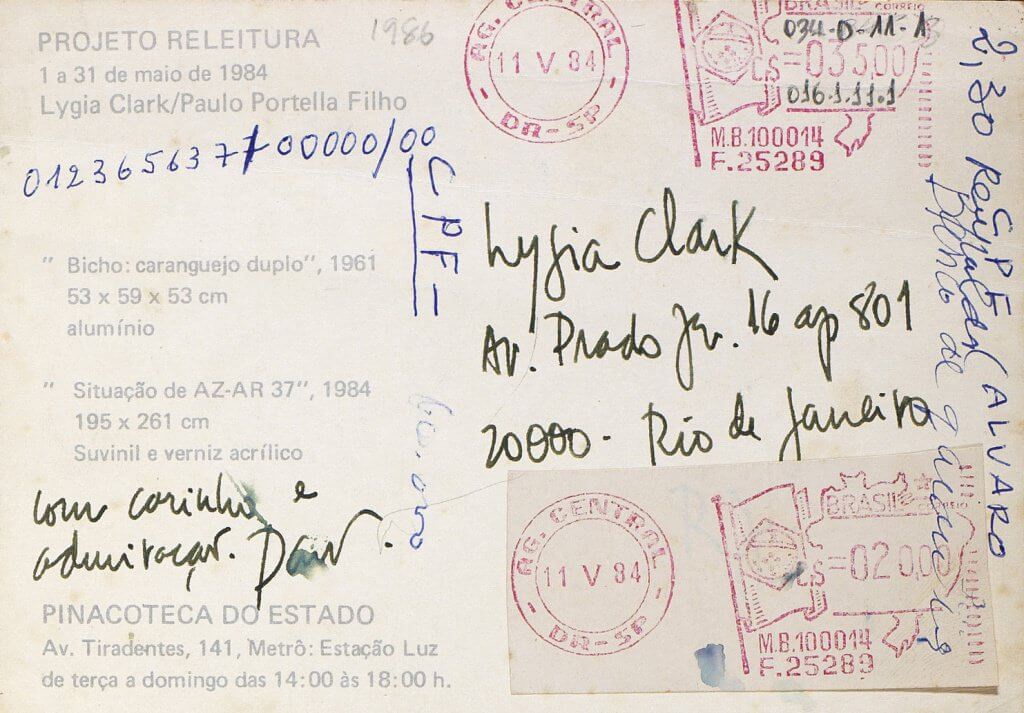 PROJETO RELEITURA
1 a 31 de maio de 1984
Lygia Clark/Paulo Portella Filho
1986
01236563 7 00000/00
CPF-
" Bicho: caranguejo duplo", 1961
53 x 59 x 53 cm
alumínio
" Situação de AZ-AR 37", 1984
195 x 261 cm
Suvinil e verniz acrílico
com carinho e
admiração.
PINACOTECA DO ESTADO
Av. Tiradentes, 141, Metrô: Estação Luz
de terça a domingo das 14:00 às 18:00 h.
AG. CENTRAL
11 V 84
DR-SP
BRASIL CORREIO
034-D-11-1
CS =035,00
016.1.11.1
M.B.100014
F.25289
Lygia Clark
Av. Prado Jr. 16 ap 801
20000 - Rio de Janeiro
2,30
CPF
(ALVARO
de
AG. CENTRAL
11 V 84
DR-SP
BRASIL
CS =020,00
M.B.100014
F.25289